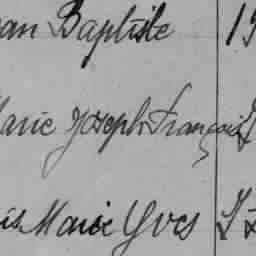 an Baptiste 19
arie Joseph François
is Marie Yves